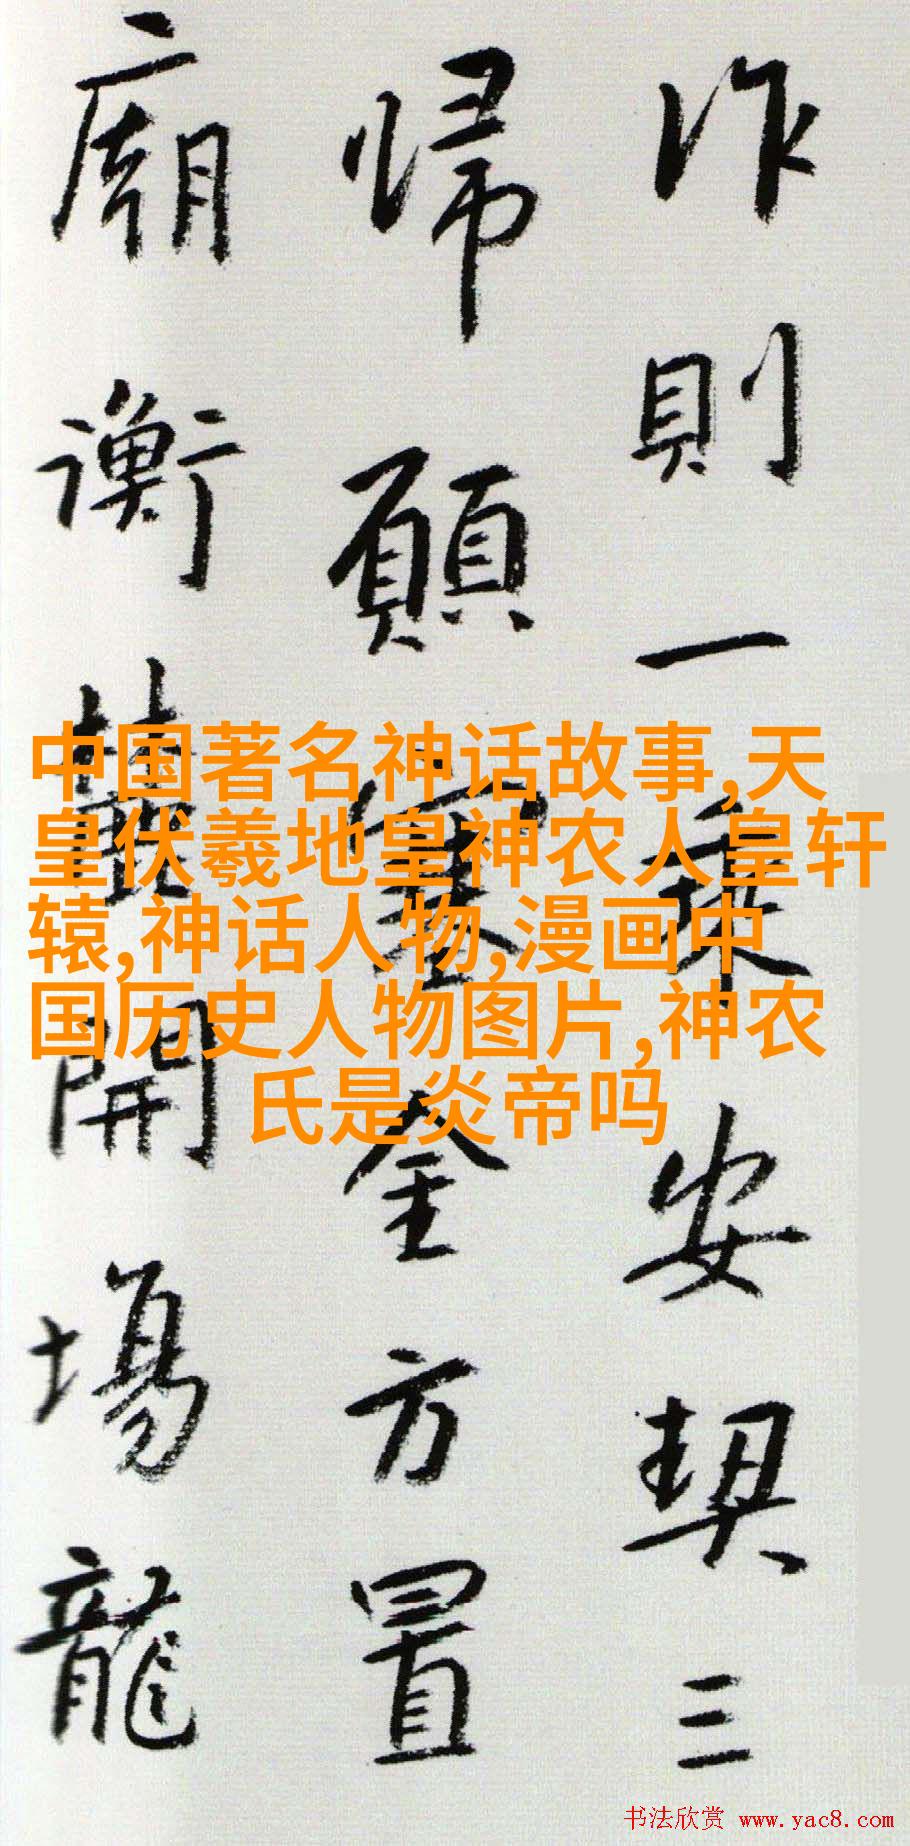 作則一乘安契三
歸願寔金方置
廟衡麓開場龍
中国著名神话故事,天
皇伏羲地皇神农人皇轩
辕,神话人物,漫画中
国历史人物图片,神农
氏是炎帝吗
书法欣赏 www.yac8.com